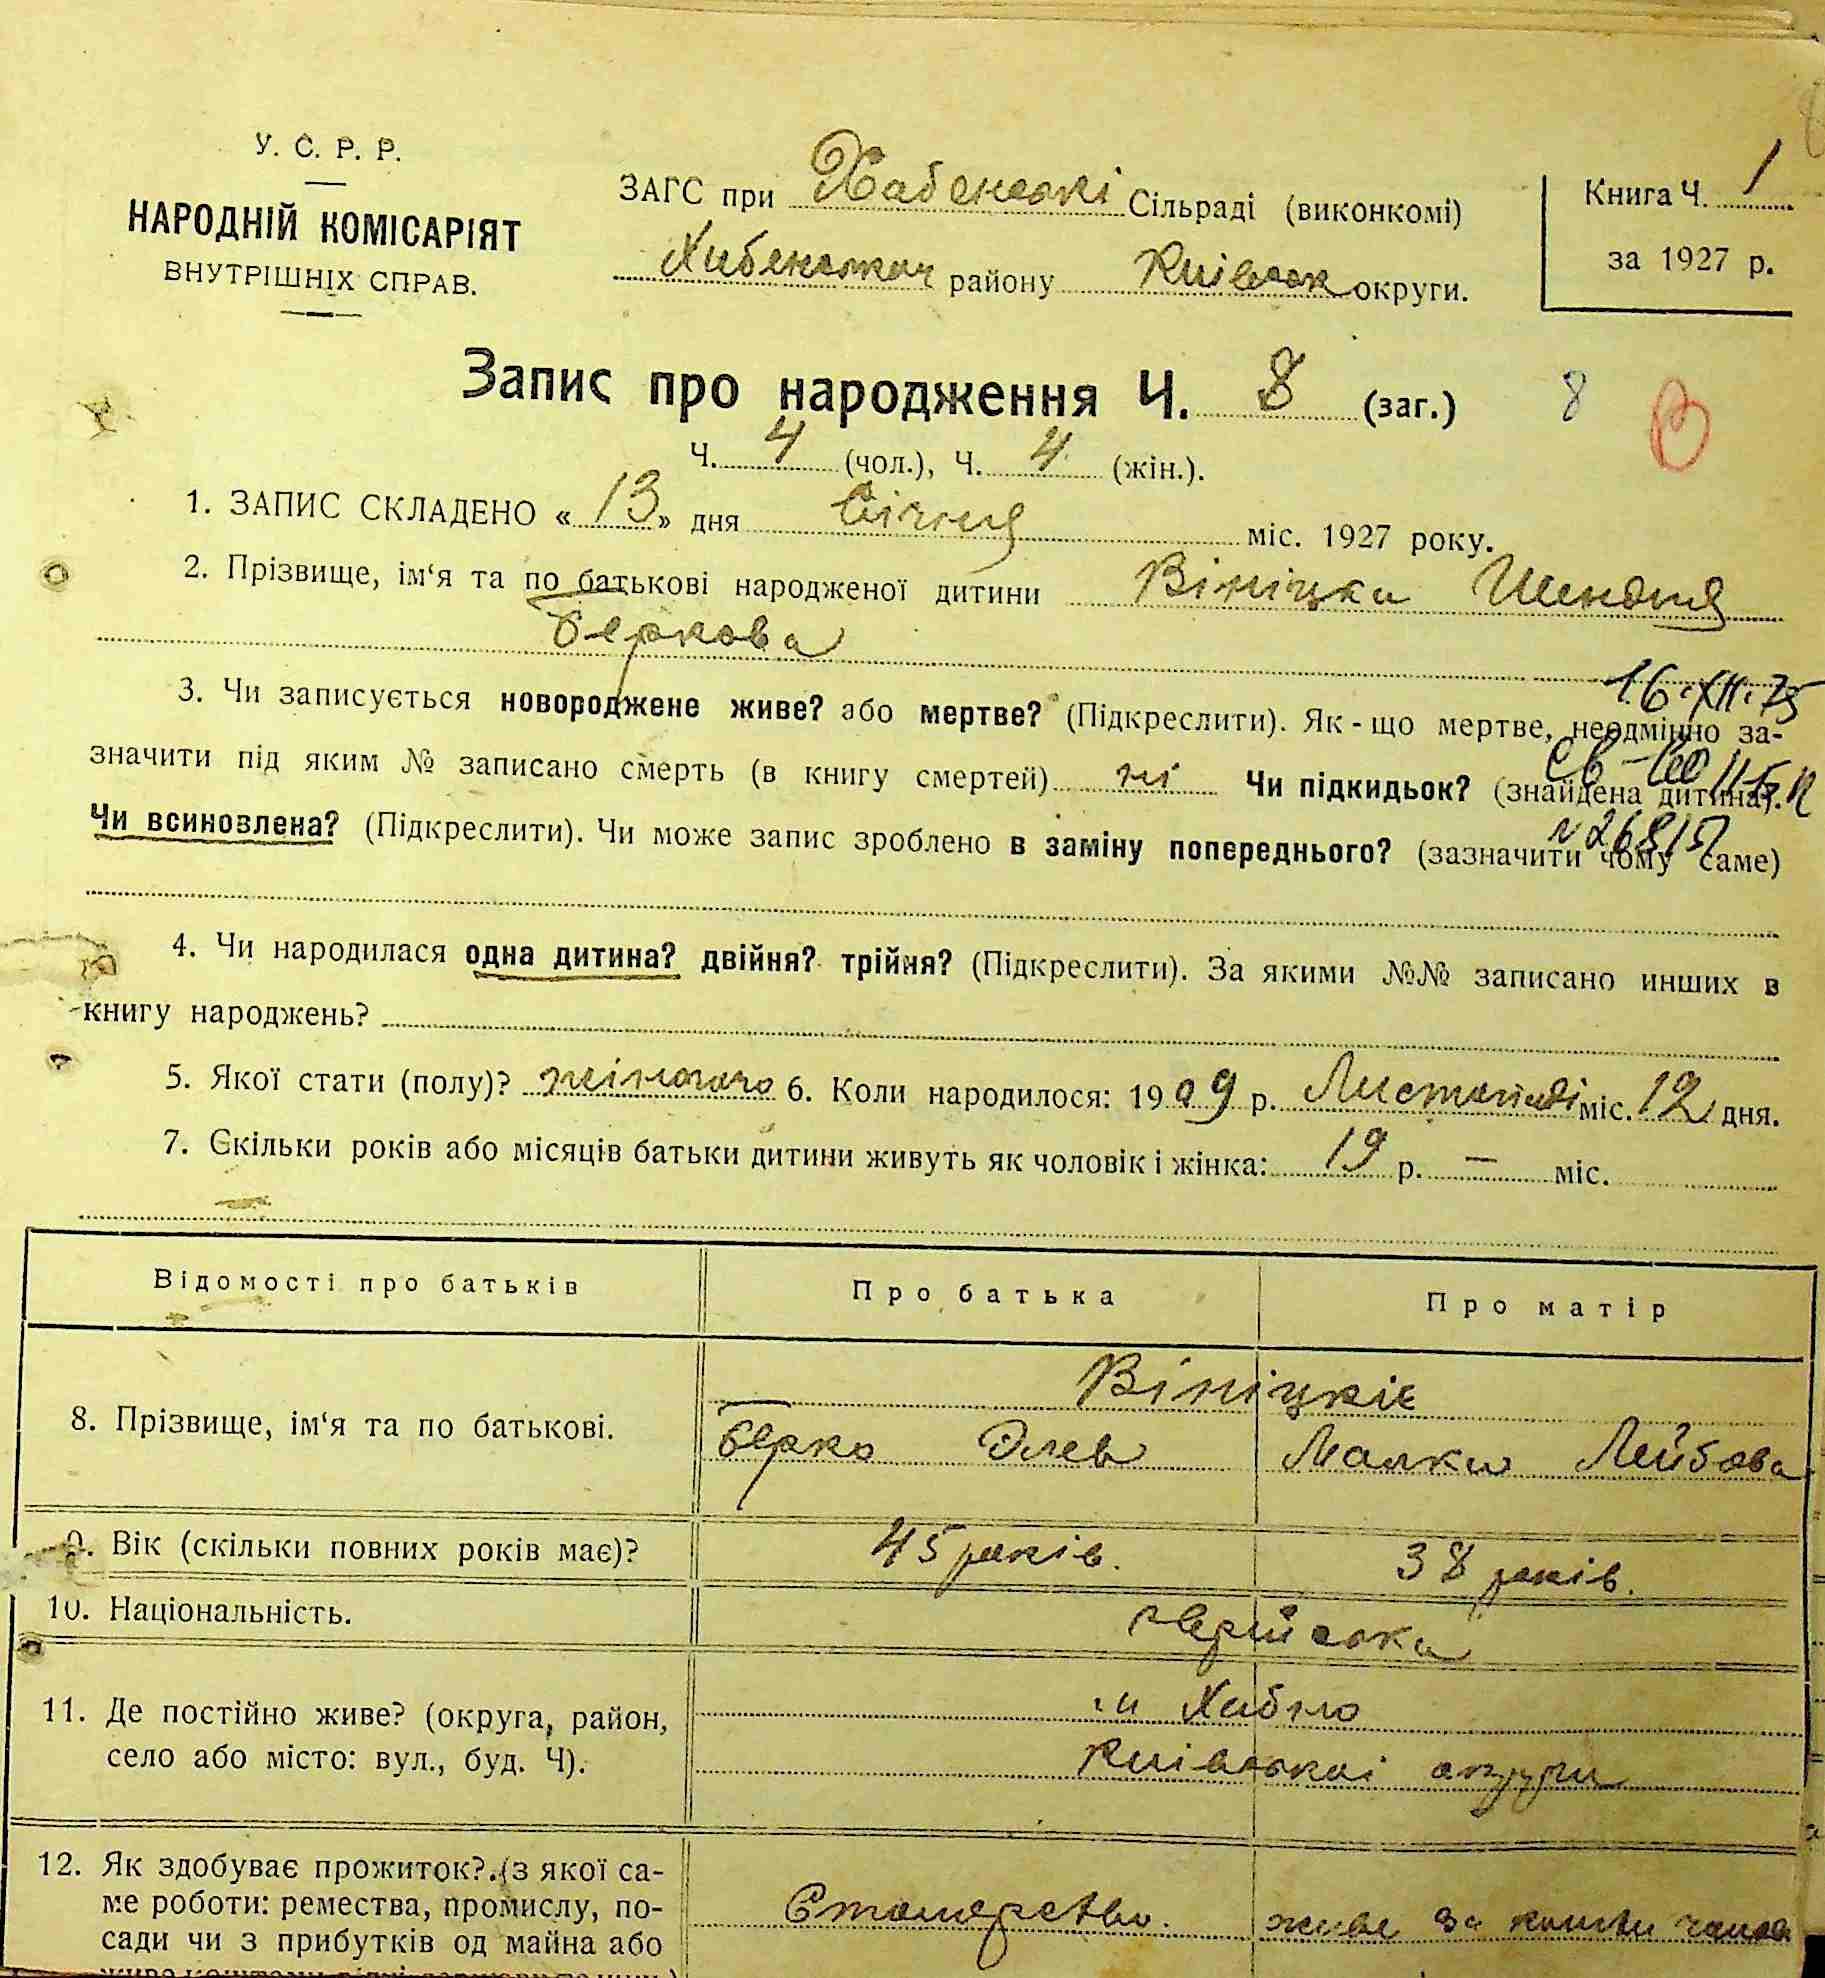 У. С. Р. Р.
НАРОДНІЙ КОМІСАРІЯТ
ВНУТРІШНІХ СПРАВ.
ЗАГС при Хабенські Сільраді (виконкомі)
Хабенськог району Київськ округи.
Книга Ч. 1
за 1927 р.
Запис про народження Ч. 8 (заг.) 8
Ч. 4 (чол.), Ч. 4 (жін.).
1. ЗАПИС СКЛАДЕНО « 13 » дня Січня міс. 1927 року.
2. Прізвище, ім‘я та по батькові народженої дитини Вініцка Шендля
Беркова
16.XII.75
3. Чи записується новороджене живе? або мертве? (Підкреслити). Як-що мертве, неодмінно за-
значити під яким № записано смерть (в книгу смертей) ні Чи підкидьок? (знайдена дитина).
Св-во II-БК
Чи всиновлена? (Підкреслити). Чи може запис зроблено в заміну попереднього? (зазначити чому саме)
4. Чи народилася одна дитина? двійня? трійня? (Підкреслити). За якими №№ записано инших в
книгу народжень?
5. Якої стати (полу)? жіночого 6. Коли народилося: 1909 р. Листопаді міс. 12 дня.
7. Скільки років або місяців батьки дитини живуть як чоловік і жінка: 19 р. — міс.
Відомості про батьків Про батька Про матір
Вініцкіє
8. Прізвище, ім‘я та по батькові. Берко Элев Малка Лейбова
9. Вік (скільки повних років має)? 45 років. 38 років.
10. Національність. Єврейська
11. Де постійно живе? (округа, район, м Хабно
село або місто: вул., буд. Ч). Київської округи
12. Як здобуває прожиток? (з якої са-
ме роботи: ремества, промислу, по- Столярство. живе за кошти чолов
сади чи з прибутків од майна або